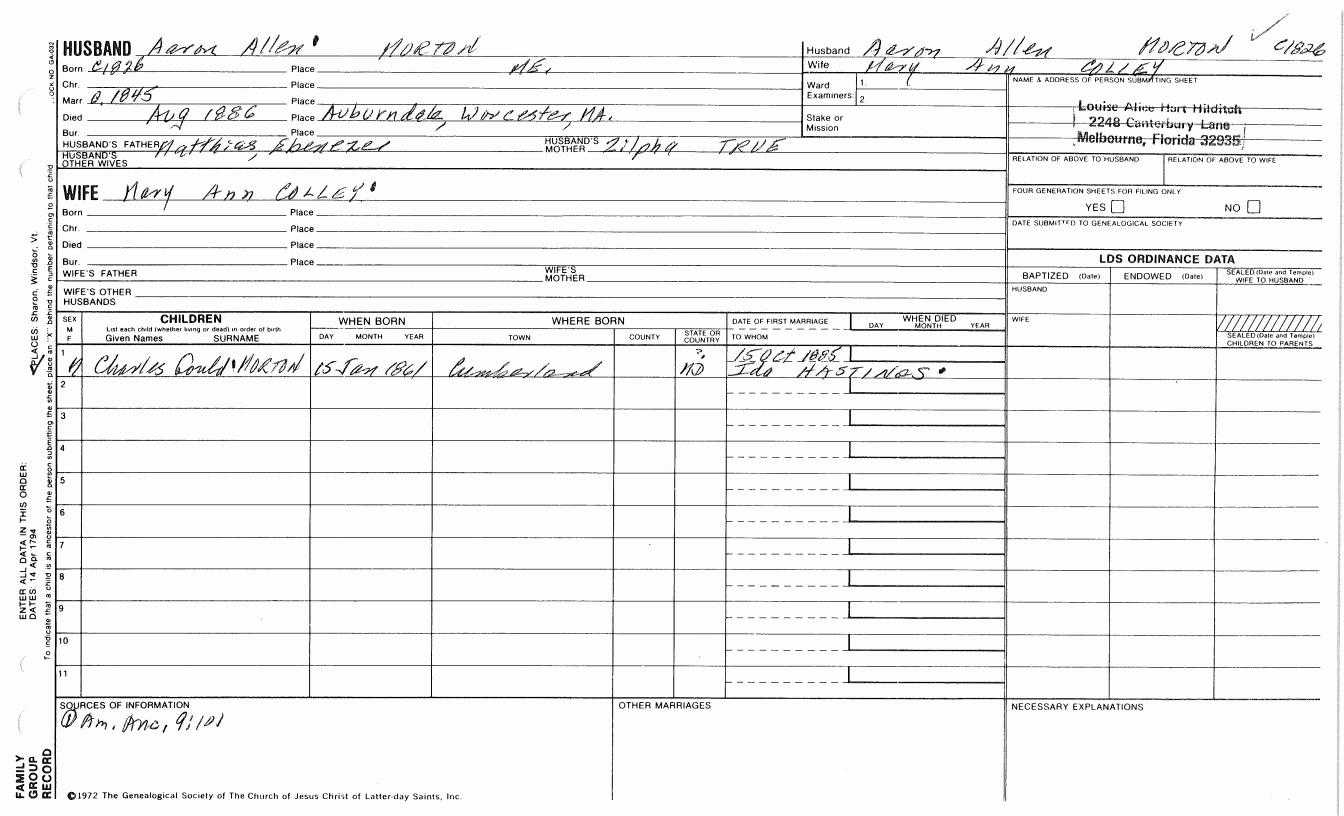 HUSBAND Aaron Allen MORTON
Born c1826 Place ME.
Chr. Place
Marr. 1845 Place
Died Aug 1886 Place Auburndale, Worcester, MA.
Bur. Place
HUSBAND'S FATHER Matthias, Ebenezer HUSBAND'S MOTHER Zilpha TRUE
HUSBAND'S OTHER WIVES
WIFE Mary Ann COLLEY
Born Place
Chr. Place
Died Place
Bur. Place
WIFE'S FATHER WIFE'S MOTHER
WIFE'S OTHER HUSBANDS
Husband Aaron Allen MORTON c1826
Wife Mary Ann COLLEY
Ward Examiners: 1 2
Stake or Mission
NAME & ADDRESS OF PERSON SUBMITTING SHEET
Louise Alice Hart Hilditch
2248 Canterbury Lane
Melbourne, Florida 32935
RELATION OF ABOVE TO HUSBAND RELATION OF ABOVE TO WIFE
FOUR GENERATION SHEETS FOR FILING ONLY
YES NO
DATE SUBMITTED TO GENEALOGICAL SOCIETY
LDS ORDINANCE DATA
BAPTIZED (Date) ENDOWED (Date) SEALED (Date and Temple) WIFE TO HUSBAND
HUSBAND
WIFE
SEALED (Date and Temple) CHILDREN TO PARENTS
SEX M F
CHILDREN
List each child (whether living or dead) in order of birth
Given Names SURNAME
WHEN BORN
DAY MONTH YEAR
WHERE BORN
TOWN COUNTY STATE OR COUNTRY
DATE OF FIRST MARRIAGE
TO WHOM
WHEN DIED
DAY MONTH YEAR
1 M Charles Gould MORTON 15 Jan 1861 Cumberland ? MD 15 Oct 1885
Ida HASTINGS
2
3
4
5
6
7
8
9
10
11
SOURCES OF INFORMATION
① Am. Anc, 9:101
OTHER MARRIAGES
NECESSARY EXPLANATIONS
©1972 The Genealogical Society of The Church of Jesus Christ of Latter-day Saints, Inc.
FAMILY
GROUP
RECORD
ENTER ALL DATA IN THIS ORDER:
DATES: 14 Apr 1794
PLACES: Sharon, Windsor, Vt.
To indicate that a child is an ancestor of the person submitting the sheet, place an "X" behind the number pertaining to that child
NO GA-032